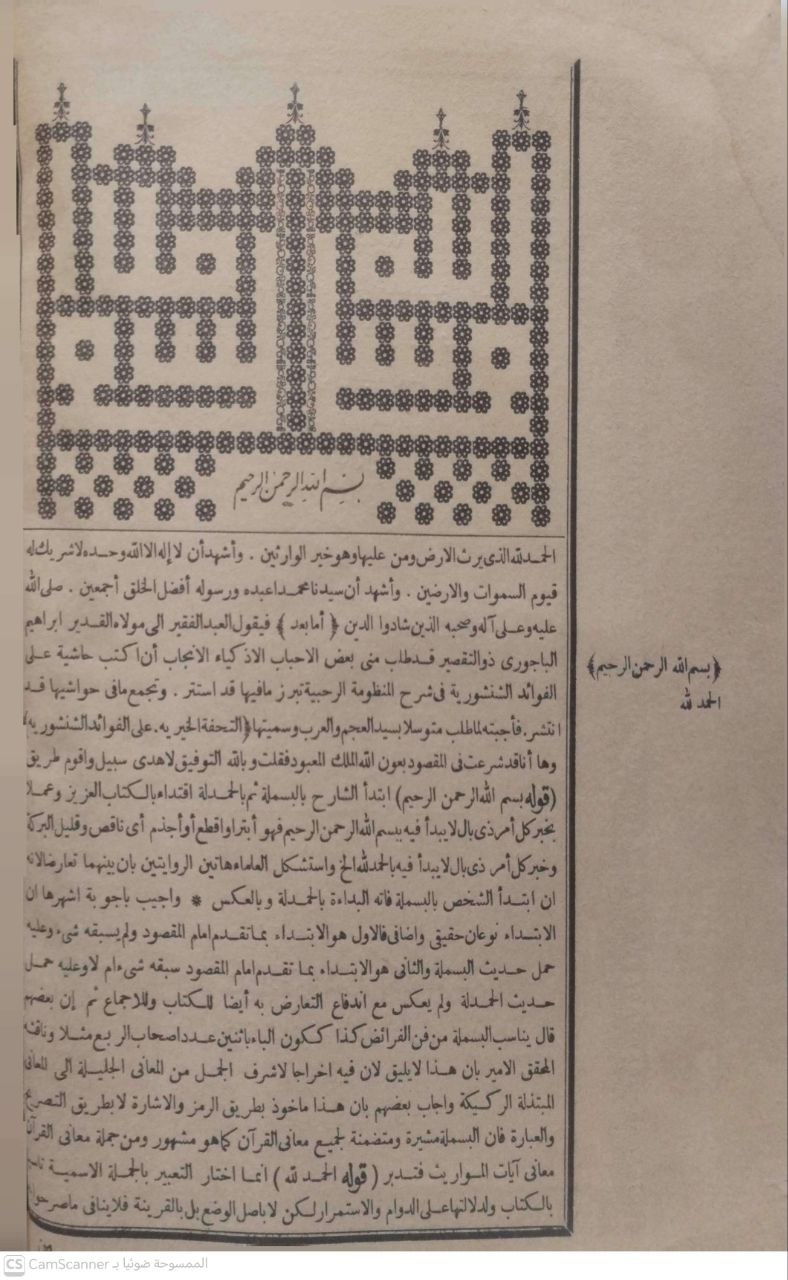 بسم الله الرحمن الرحيم
الحمد لله الذى يرث الارض ومن عليها وهو خير الوارثين . وأشهد أن لا إله الا الله وحده لا شريك له
قيوم السموات والارضين . وأشهد أن سيدنا محمدا عبده ورسوله أفضل الخلق أجمعين . صلى الله
عليه وعلى آله وصحبه الذين شادوا الدين ﴿ أما بعد ﴾ فيقول العبد الفقير الى مولاه القدير ابراهيم
الباجورى ذو التقصير قد طلب منى بعض الاحباب الاذكياء الانجاب أن اكتب حاشية على
الفوائد الشنشورية فى شرح المنظومة الرحبية تبرز مافيها قد استتر . وتجمع مافى حواشيها قد
انتشر . فأجبته لما طلب متوسلا بسيد العجم والعرب وسميتها ﴿التحفة الخيريه . على الفوائد الشنشوريه﴾
وها أنا قد شرعت فى المقصود بعون الله الملك المعبود فقلت وبالله التوفيق لاهدى سبيل واقوم طريق
(قوله بسم الله الرحمن الرحيم) ابتدأ الشارح بالبسملة ثم بالحمدلة اقتداء بالكتاب العزيز وعملا
بخبر كل أمر ذى بال لا يبدأ فيه ببسم الله الرحمن الرحيم فهو أبتر او اقطع أو أجذم أى ناقص وقليل البركة
وخبر كل أمر ذى بال لا يبدأ فيه بالحمد لله الخ واستشكل العلماء هاتين الروايتين بان بينهما تعارضا لانه
ان ابتدأ الشخص بالبسملة فاته البداءة بالحمدلة وبالعكس * واجيب باجوبة اشهرها ان
الابتداء نوعان حقيقى واضافى فالاول هو الابتداء بما تقدم امام المقصود ولم يسبقه شىء وعليه
حمل حديث البسملة والثانى هو الابتداء بما تقدم امام المقصود سبقه شىء ام لا وعليه حمل
حديث الحمدلة ولم يعكس مع اندفاع التعارض به أيضا للكتاب وللاجماع ثم إن بعضهم
قال يناسب البسملة من فن الفرائض كذا ككون الباء باثنين عدد اصحاب الربع مثلا وناقشه
المحقق الامير بان هذا لا يليق لان فيه اخراجا لاشرف الجمل من المعانى الجليلة الى المعانى
المبتذلة الركيكة واجاب بعضهم بان هذا ماخوذ بطريق الرمز والاشارة لا بطريق التصريح
والعبارة فان البسملة مشيرة ومتضمنة لجميع معانى القرآن كما هو مشهور ومن جملة معانى القرآن
معانى آيات المواريث فتدبر (قوله الحمد لله) انما اختار التعبير بالجملة الاسمية
بالكتاب ولدلالتها على الدوام والاستمرار لكن لا باصل الوضع بل بالقرينة فلا ينافى ما صرحوا
﴿بسم الله الرحمن الرحيم﴾
الحمد لله
الممسوحة ضوئيا بـ CamScanner